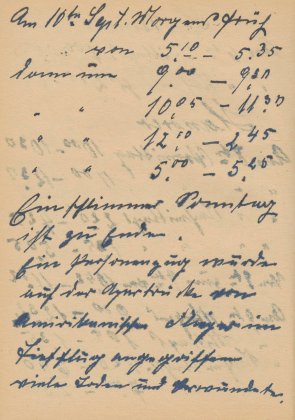 Am 10ten Sept. Morgens früh
von 5.10 – 5.35
dann um 9.00 – 9.20
" " 10.05 – 11.30
" " 12.10 – 2.45
" " 5.00 – 5.25
Ein schlimmer Sonntag
ist zu Ende.
Ein Personenzug wurde
auf der Agerbrücke von
Amerikanischen Jäger im
Tiefflug angegriffen
viele Toden und Verwundete.